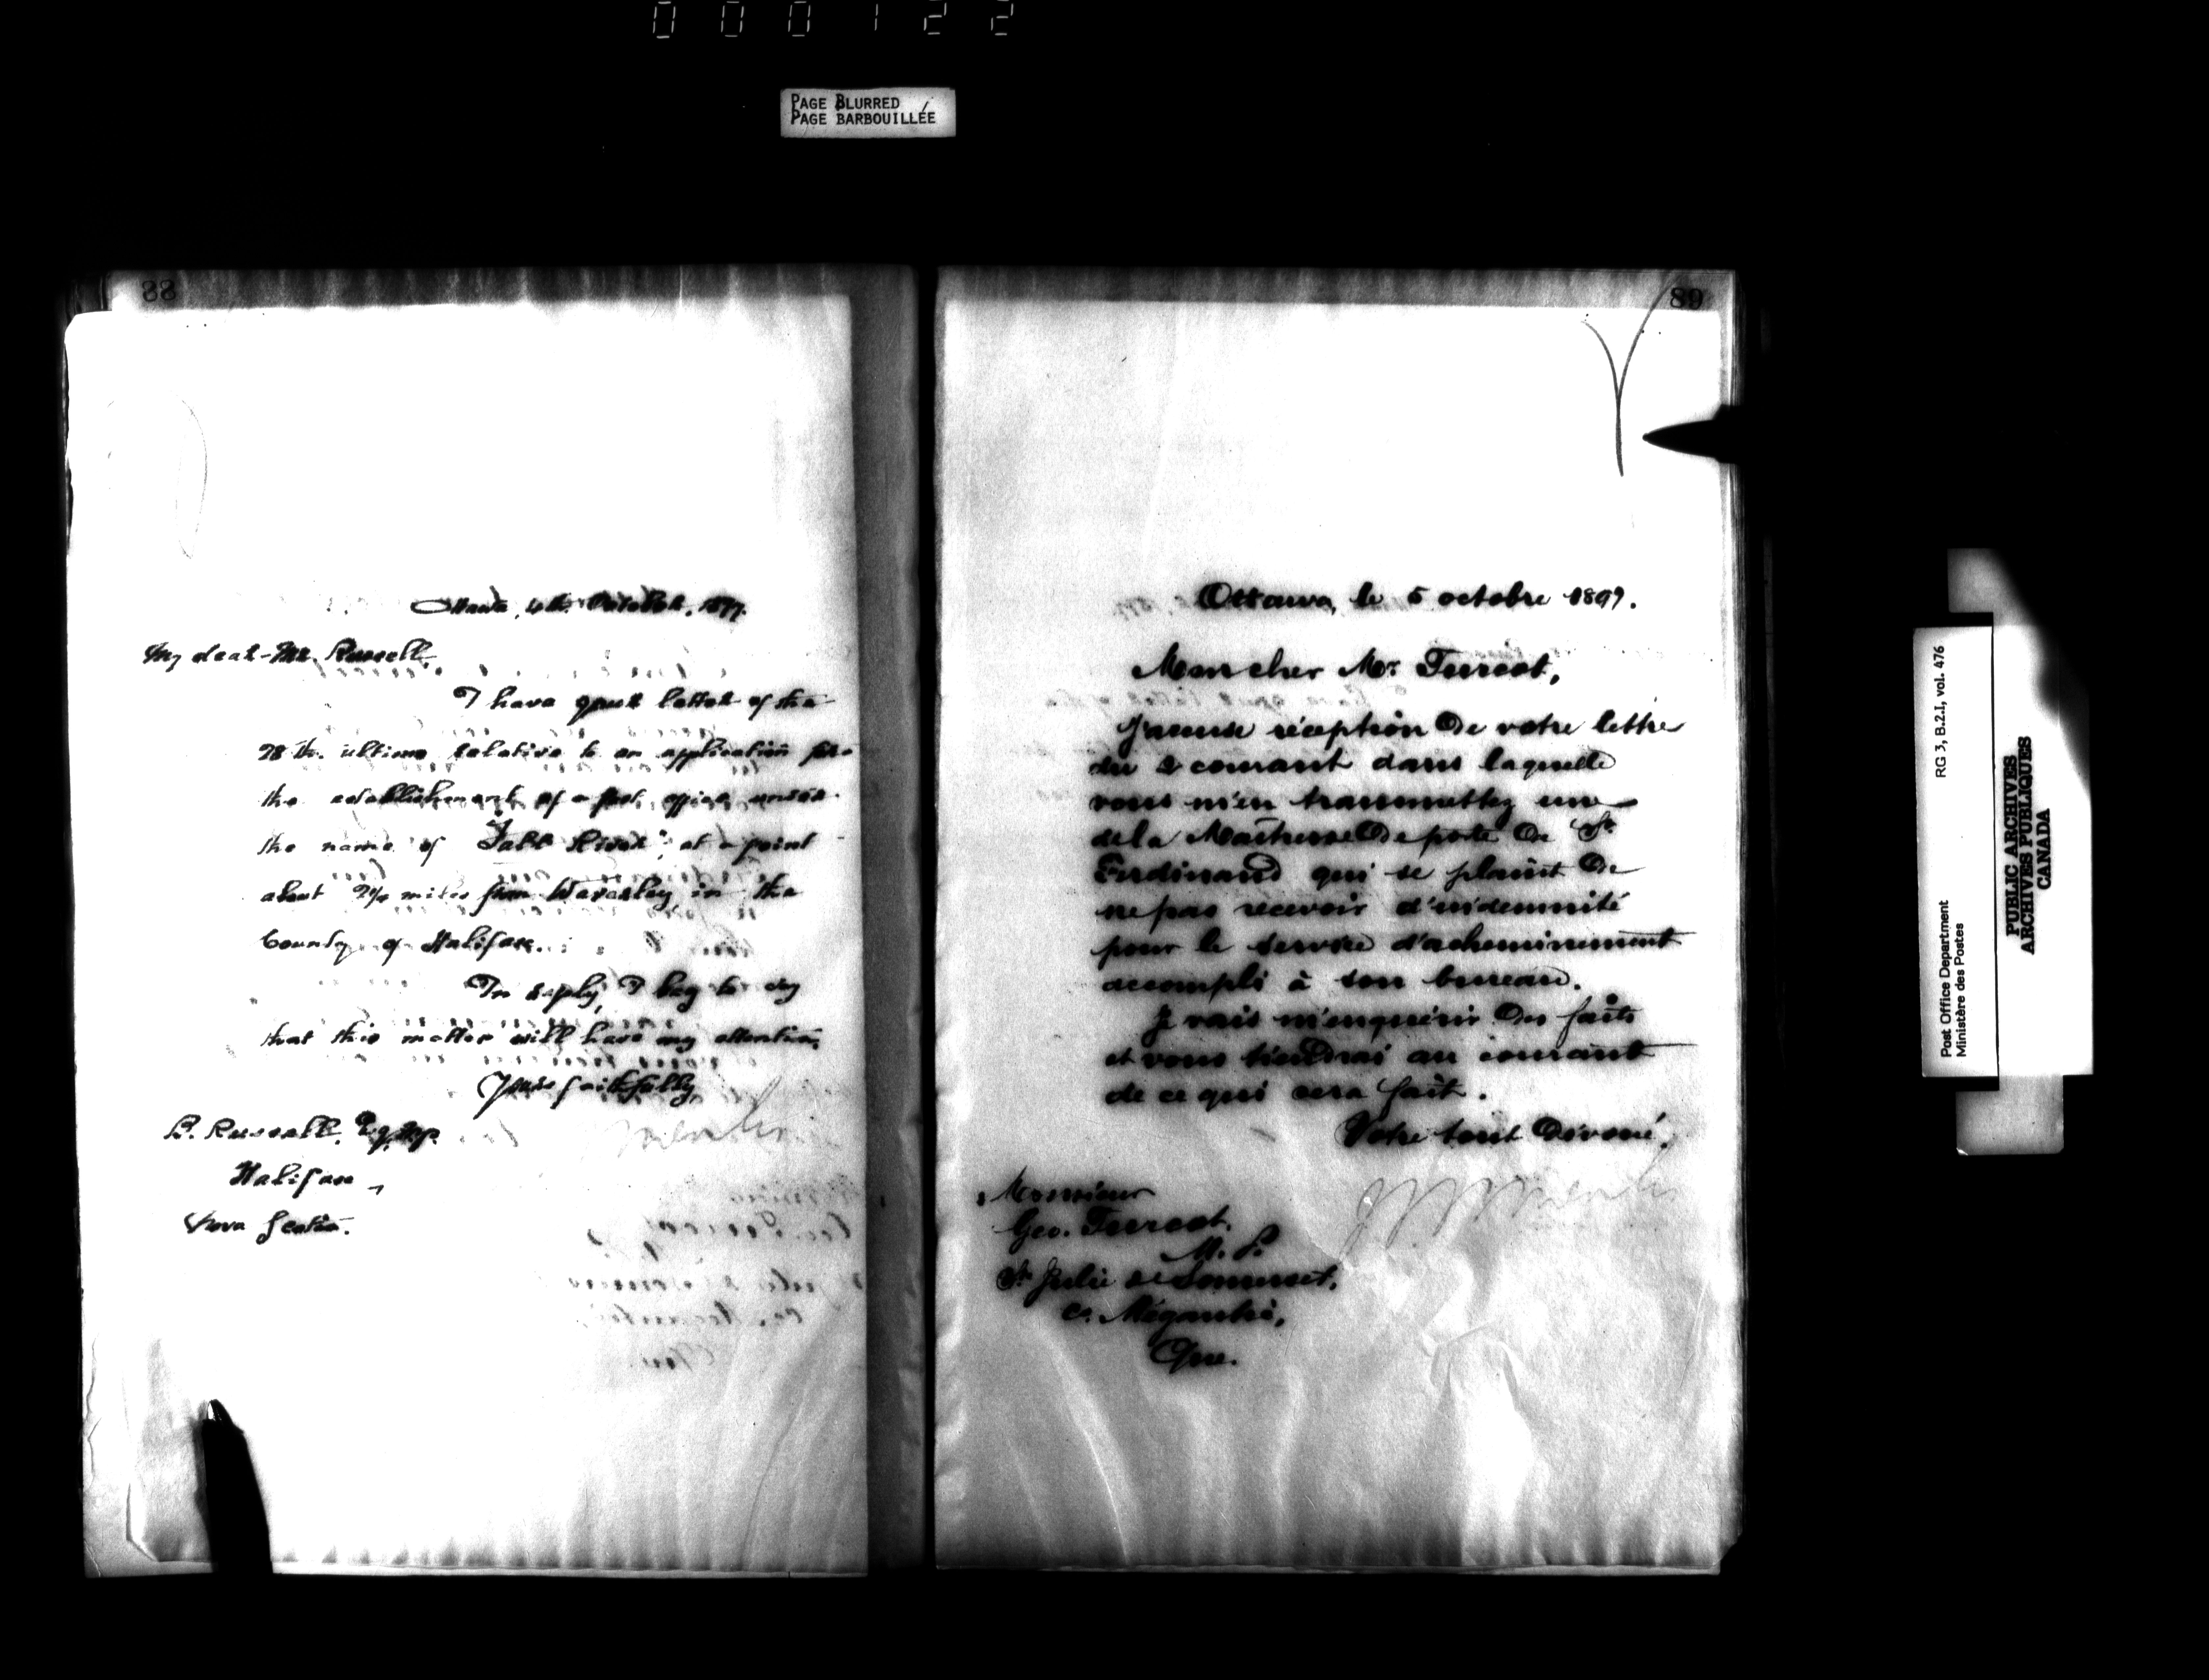 000122
PAGE BLURRED
PAGE BARBOUILLÉE
88
Ottawa, 4th October, 1897.
My dear Mr. Russell,
I have your letter of the
28th. ultimo relative to an application for
the establishment of a post office under
the name of "Fall River", at a point
about 2½ miles from Waverley, in the
County of Halifax.
In reply, I beg to say
that this matter will have my attention.
Yours faithfully,
B. Russell, Esq. M.P.
Halifax,
Nova Scotia.
89
Ottawa, le 5 octobre 1897.
Mon cher Mr. Turcot,
J'accuse réception de votre lettre
du 2 courant dans laquelle
vous m'en transmettez une
de la Maîtresse de poste de St
Ferdinand qui se plaint de
ne pas recevoir d'indemnité
pour le service d'acheminement
accompli à son bureau.
Je vais m'enquérir des faits
et vous tiendrai au courant
de ce qui sera fait.
Votre tout dévoué,
Monsieur
Geo. Turcot,
M. P.
St Julie de Somerset,
Co. Mégantic,
Que.
Post Office Department
Ministère des Postes
RG 3, B.2.I, vol. 476
PUBLIC ARCHIVES
ARCHIVES PUBLIQUES
CANADA